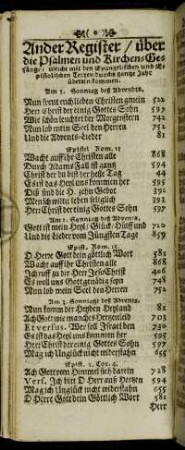 Ander Register / über
die Psalmen und Kirchen-Ge-
sänge / welche mit den Evangelischen und E-
pistolischen Texten durchs gantze Jahr
überein kommen.
Am 1. Sonntag deß Advendts.
Nun freut euch lieben Christen gmein 522
Herr Christ der einig Gottes Sohn 597
Wie schön leuchtet der Morgenstern 771
Nun lob mein Seel den Herren 752
Und die Advents-Lieder 81
Epistel Rom. 13
Wacht auff ihr Christen alle 868
Durch Adams Fall ist gantz 594
Christ der du bist der helle Tag 44
Es ist das Heyl uns kommen her 595
Diß sind die H. zehn Gebot 391
Mensch wilt du leben seliglich 392
Herr Christ der einig Gottes Sohn 597
Am 2. Sonntag deß Advents.
Gott ist mein Heyl / Glück / Hülff und 720
Und die Lieder vom Jüngsten Tage 859
Epist. Rom. 15
O Herre Gott dein göttlich Wort 581
Wacht auff ihr Christen alle 868
Ich ruff zu dir Herr Jesu Christ
Es woll uns Gott genädig seyn
Nun lob mein Seel den Herren 752
Am 3. Sonntage deß Advents.
Nun komm der Heyden Heyland 81
Ach Gott wie manches Hertzenleid 703
Et versus. Wer soll Israel den 730
Es ist das Heyl uns kommen her 595
Herr Christ der einig Gottes Sohn 597
Mag ich Unglück nicht widerstahn 655
Epist. 1. Cor. 4.
Ach Gott vom Himmel sieh darein 728
Vers. Ich bitt O Herr aus Hertzen 594
Mag ich Unglück nicht widerstahn 655
O Herre Gott dein Göttlich Wort 581
Herr